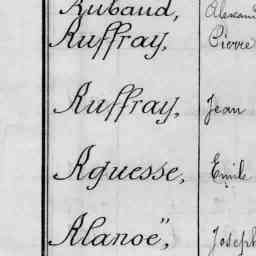 Aubaud,
Auffray, Pierre
Auffray, Jean
Aguesse, Emile
Alanoe", Joseph